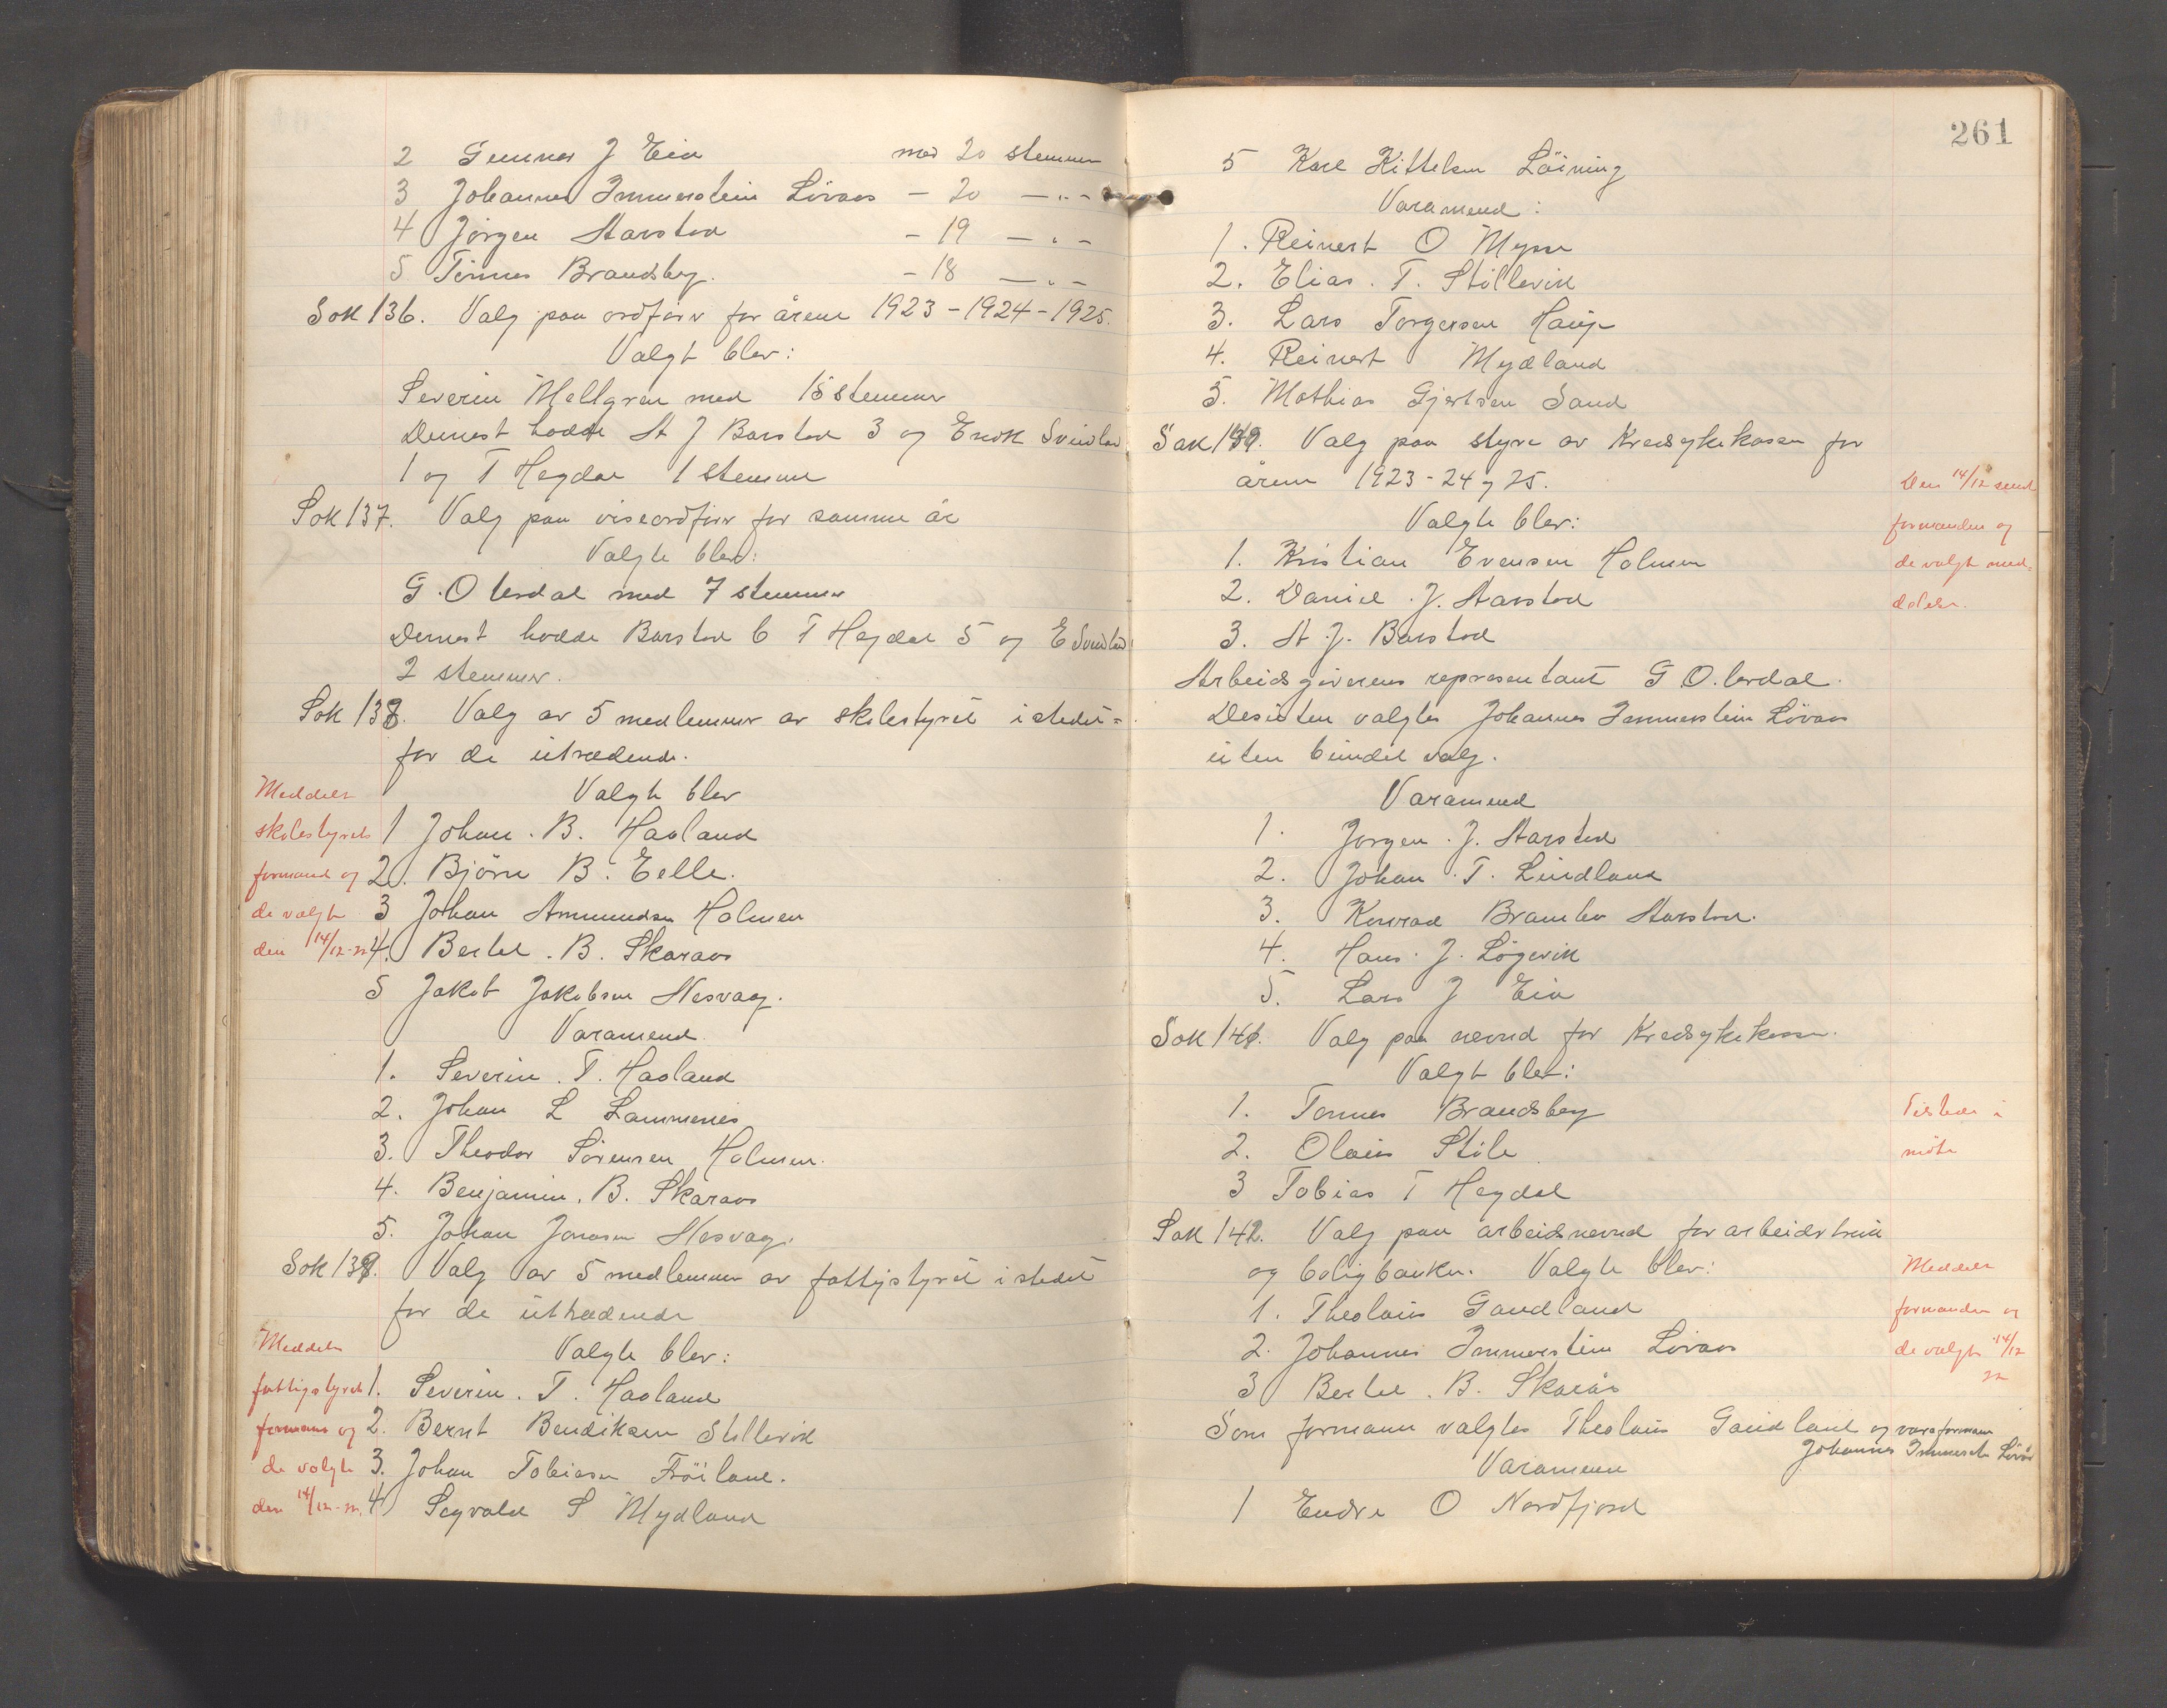 2 Gunnar J Eia med 20 stemmer
3 Johannes Immerstein Lövaas - 20 - " -
4 Jörgen Aarstad - 19 - " -
5 Tönnes Brandsberg. - 18 - " -
Sak 136. Valg paa ordförer for årene 1923 - 1924 - 1925.
Valgt blev:
Severin Mellgren med 15 stemmer
Dernest hadde A J Barstad 3 og Endk Svindland
1 og T Hegdal 1 stemme
Sak 137. Valg paa viseordförer for samme år
Valgte blev:
G. O Urdal med 7 stemmer
Dernest hadde Barstad 6 T Hegdal 5 og E Svindland
2 stemmer.
Sak 138. Valg av 5 medlemmer av skolestyret istedet=
for de uttrædende.
Valgt blev
Meddelt
skolestyrets
formand og
de valgte
den 14/12-22
1 Johan. B. Haaland
2. Björn B. Eelle.
3 Johan Ammundsen Holmen
4. Bertel. B. Skaraas
5 Jakob Jakobsen Nesvaag.
Varamend
1. Severin. T. Haaland
2. Johan L Lammenes
3. Theodor Sörensen Holmen.
4. Benjamin. B. Skaraas
5. Johan Jonasen Nesvaag.
Sak 139. Valg av 5 medlemmer av fattigstyret istedet
for de uttrædende
Valgte blev:
Meddelt
fattigstyrets
formann og
de valgte
den 14/12-22.
1. Severin. T. Haaland
2. Bernt Bendiksen Stöllevik
3. Johan Tobiasen Fröiland.
4 Segvald S Mydland
261
5 Karl Kittelsen Löining
Varamend:
1. Reinert O Mysse
2. Elias. T. Stöllevik
3. Lars Torgersen Hauge
4. Reinert Mydland
5. Mathias Gjertsen Sand
Sak 139. Valg paa styre av Kredssykekassen for
årene 1923-24 og 25.
Valgte blev:
Den 14/12 sendt
formanden og
de valgte med=
delelse.
1. Kristian Evensen Holmen
2. Daniel. J. Aarstad
3. A. J. Barstad
Arbeidsgiverens representant G. O. Urdal.
Desisten valgtes Johannes Immerstein Lövaas
uten bundet valg.
Varamend
1. Jørgen. J. Aarstad
2. Johan. T. Lindland
3. Konrad Bramler Aarstad.
4. Hans. J. Lögevik
5. Lars J Eia
Sak 141. Valg paa nevnd for Kredssykekassen.
Valgt blev:
1. Tønnes Brandsberg
2. Olaus Støle
3 Tobias T Hegdal
Tilstede i
møte
Sak 142. Valg paa arbeidsnevnd for arbeidsbruk
og boligbanken. Valgte blev:
1. Theolaus Gaudland
2. Johannes Immerstein Lövaas
3 Bertel. B. Skaraas
Meddelt
formanden og
de valgte 14/12
22
Som formann valgtes Theolaus Gaudland og varaformann
Johannes Immerstein Lövås
Varamenn
1 Endre O Nordfjord